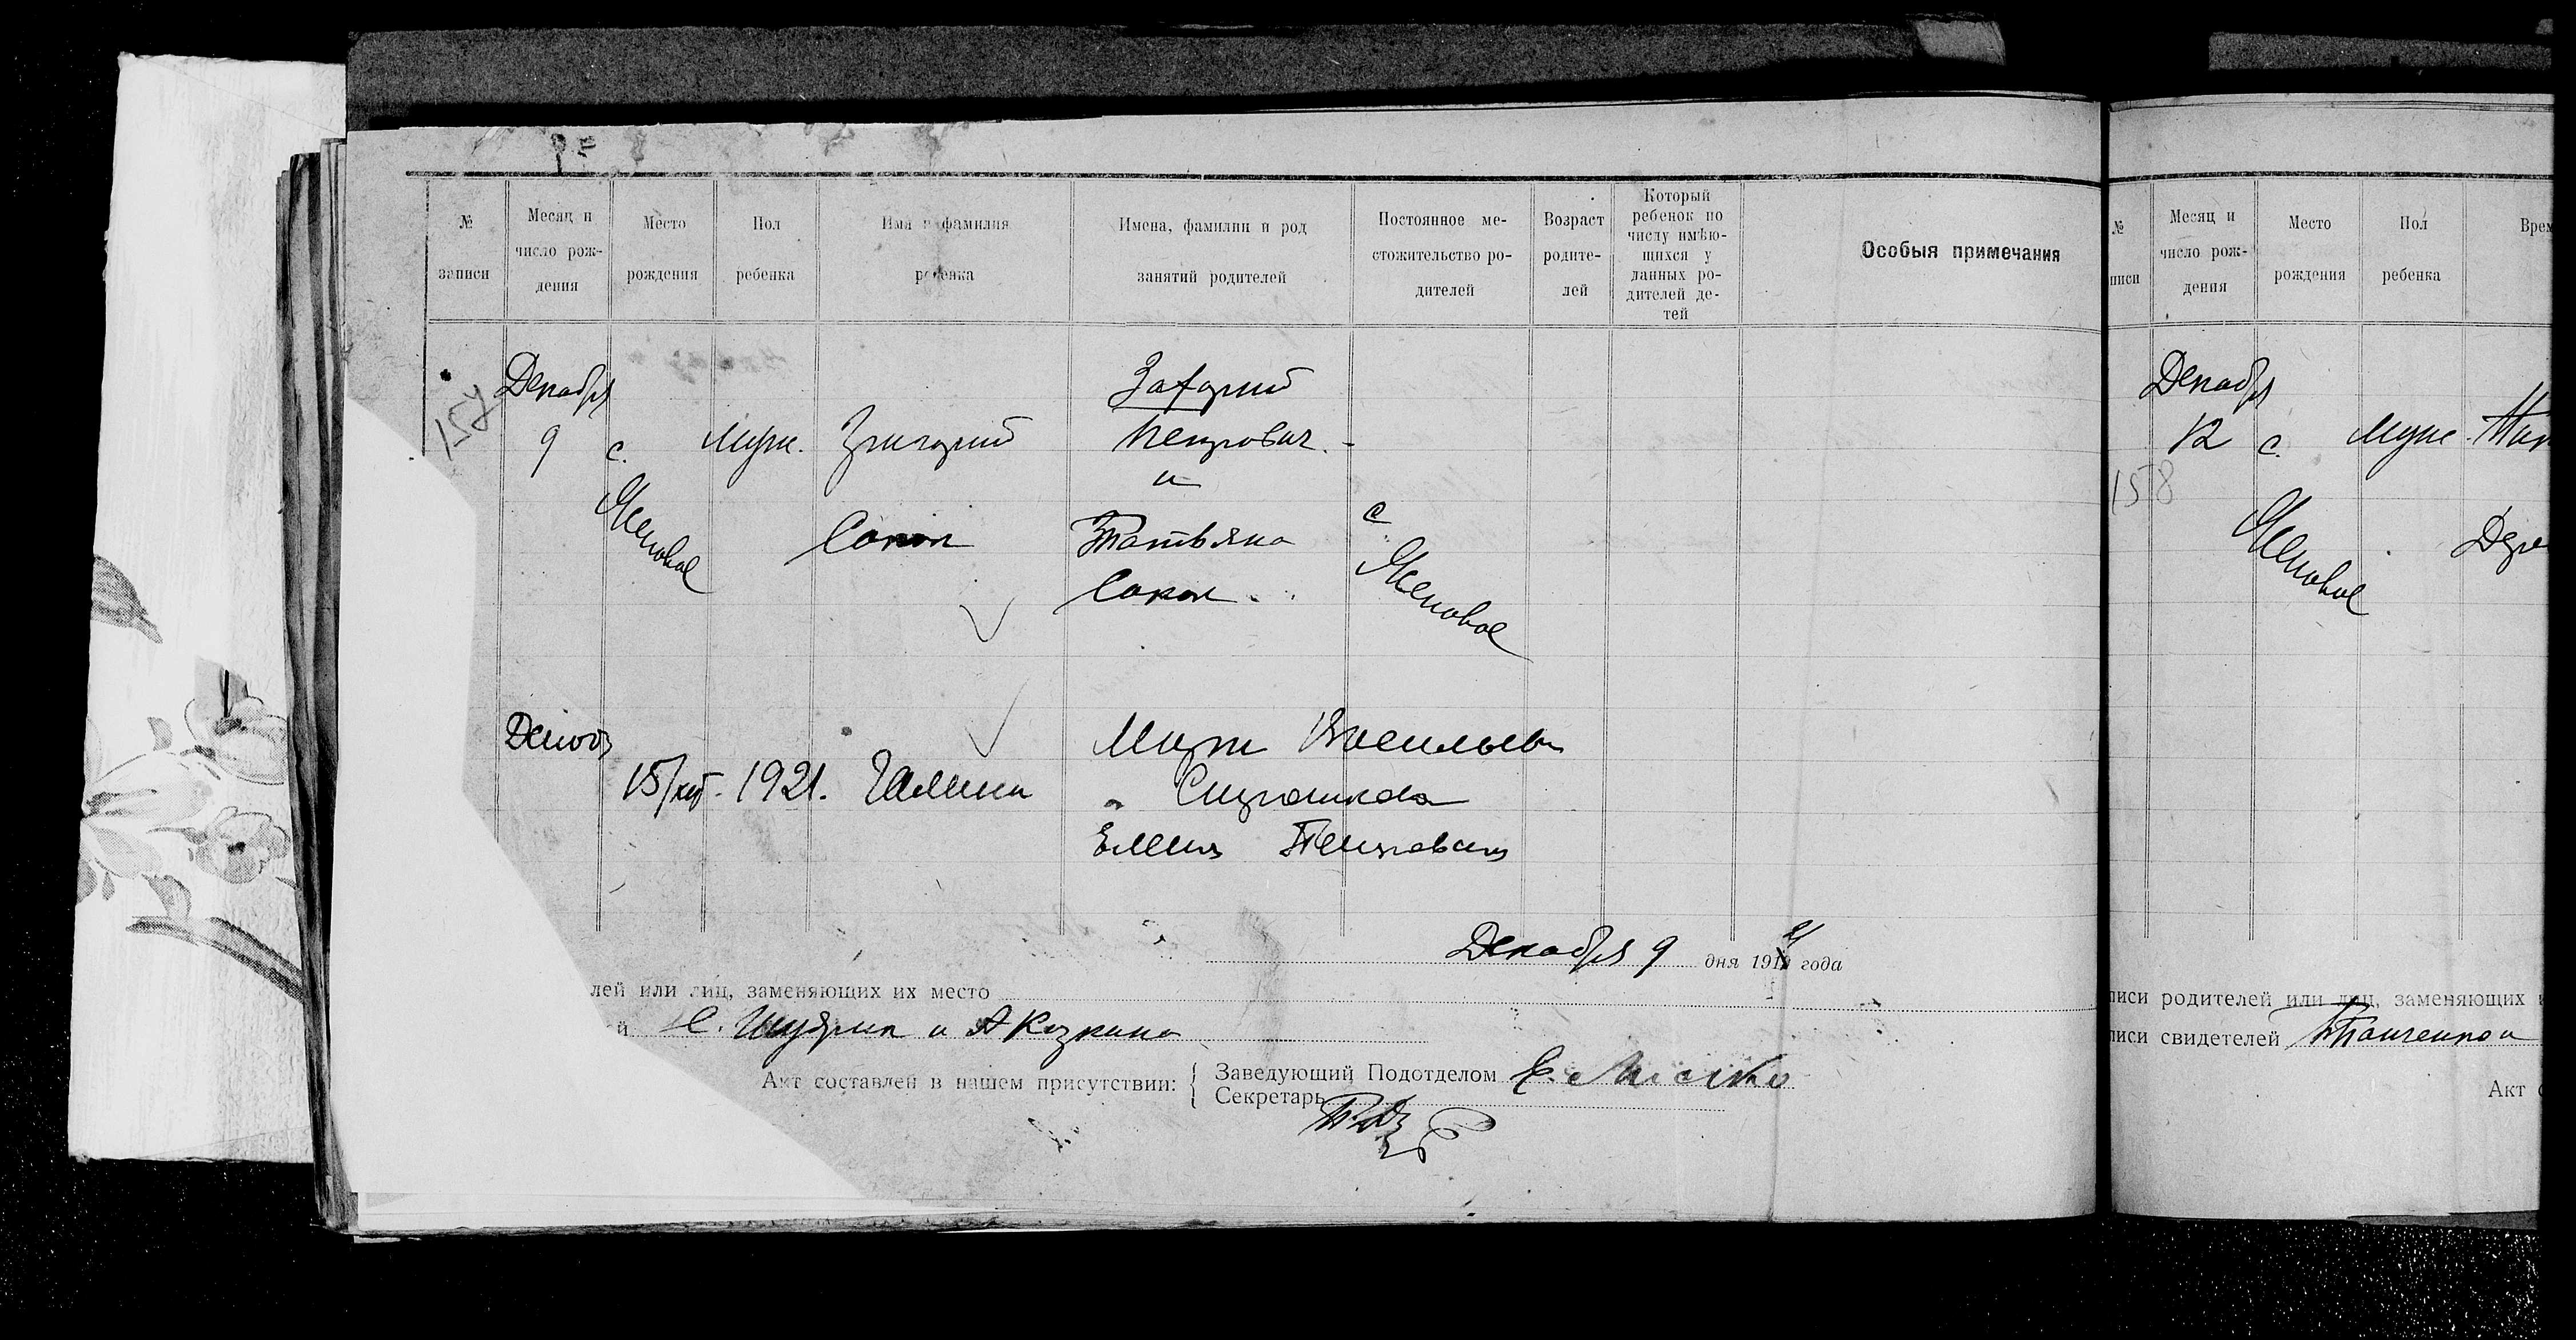 № записи
Месяц и число рождения
Место рождения
Пол ребенка
Имя и фамилия ребенка
Имена, фамилии и род занятий родителей
Постоянное местожительство родителей
Возраст родителей
Который ребенок по числу имѣющихся у данных родителей детей
Особыя примечания
157
Декабря
9
с. Ясеновое
Муж.
Григорий
Сокол
Захарий
Петрович
и
Татьяна
Сокол
с. Ясеновое
15/хіі 1921. Галина
Марк Васильев
Елена
Декабря 9 дня 191 года
лей или лиц, заменяющих их место
й С. Шубрик и А
Акт составлен в нашем присутствии:
Заведующий Подотделом Е.
Секретарь
№
писи
Месяц и число рождения
Место рождения
Пол ребенка
Врем
158
Декабря
12
с. Ясеновое
Муж
писи родителей или лиц, заменяющих
писи свидетелей
Акт с